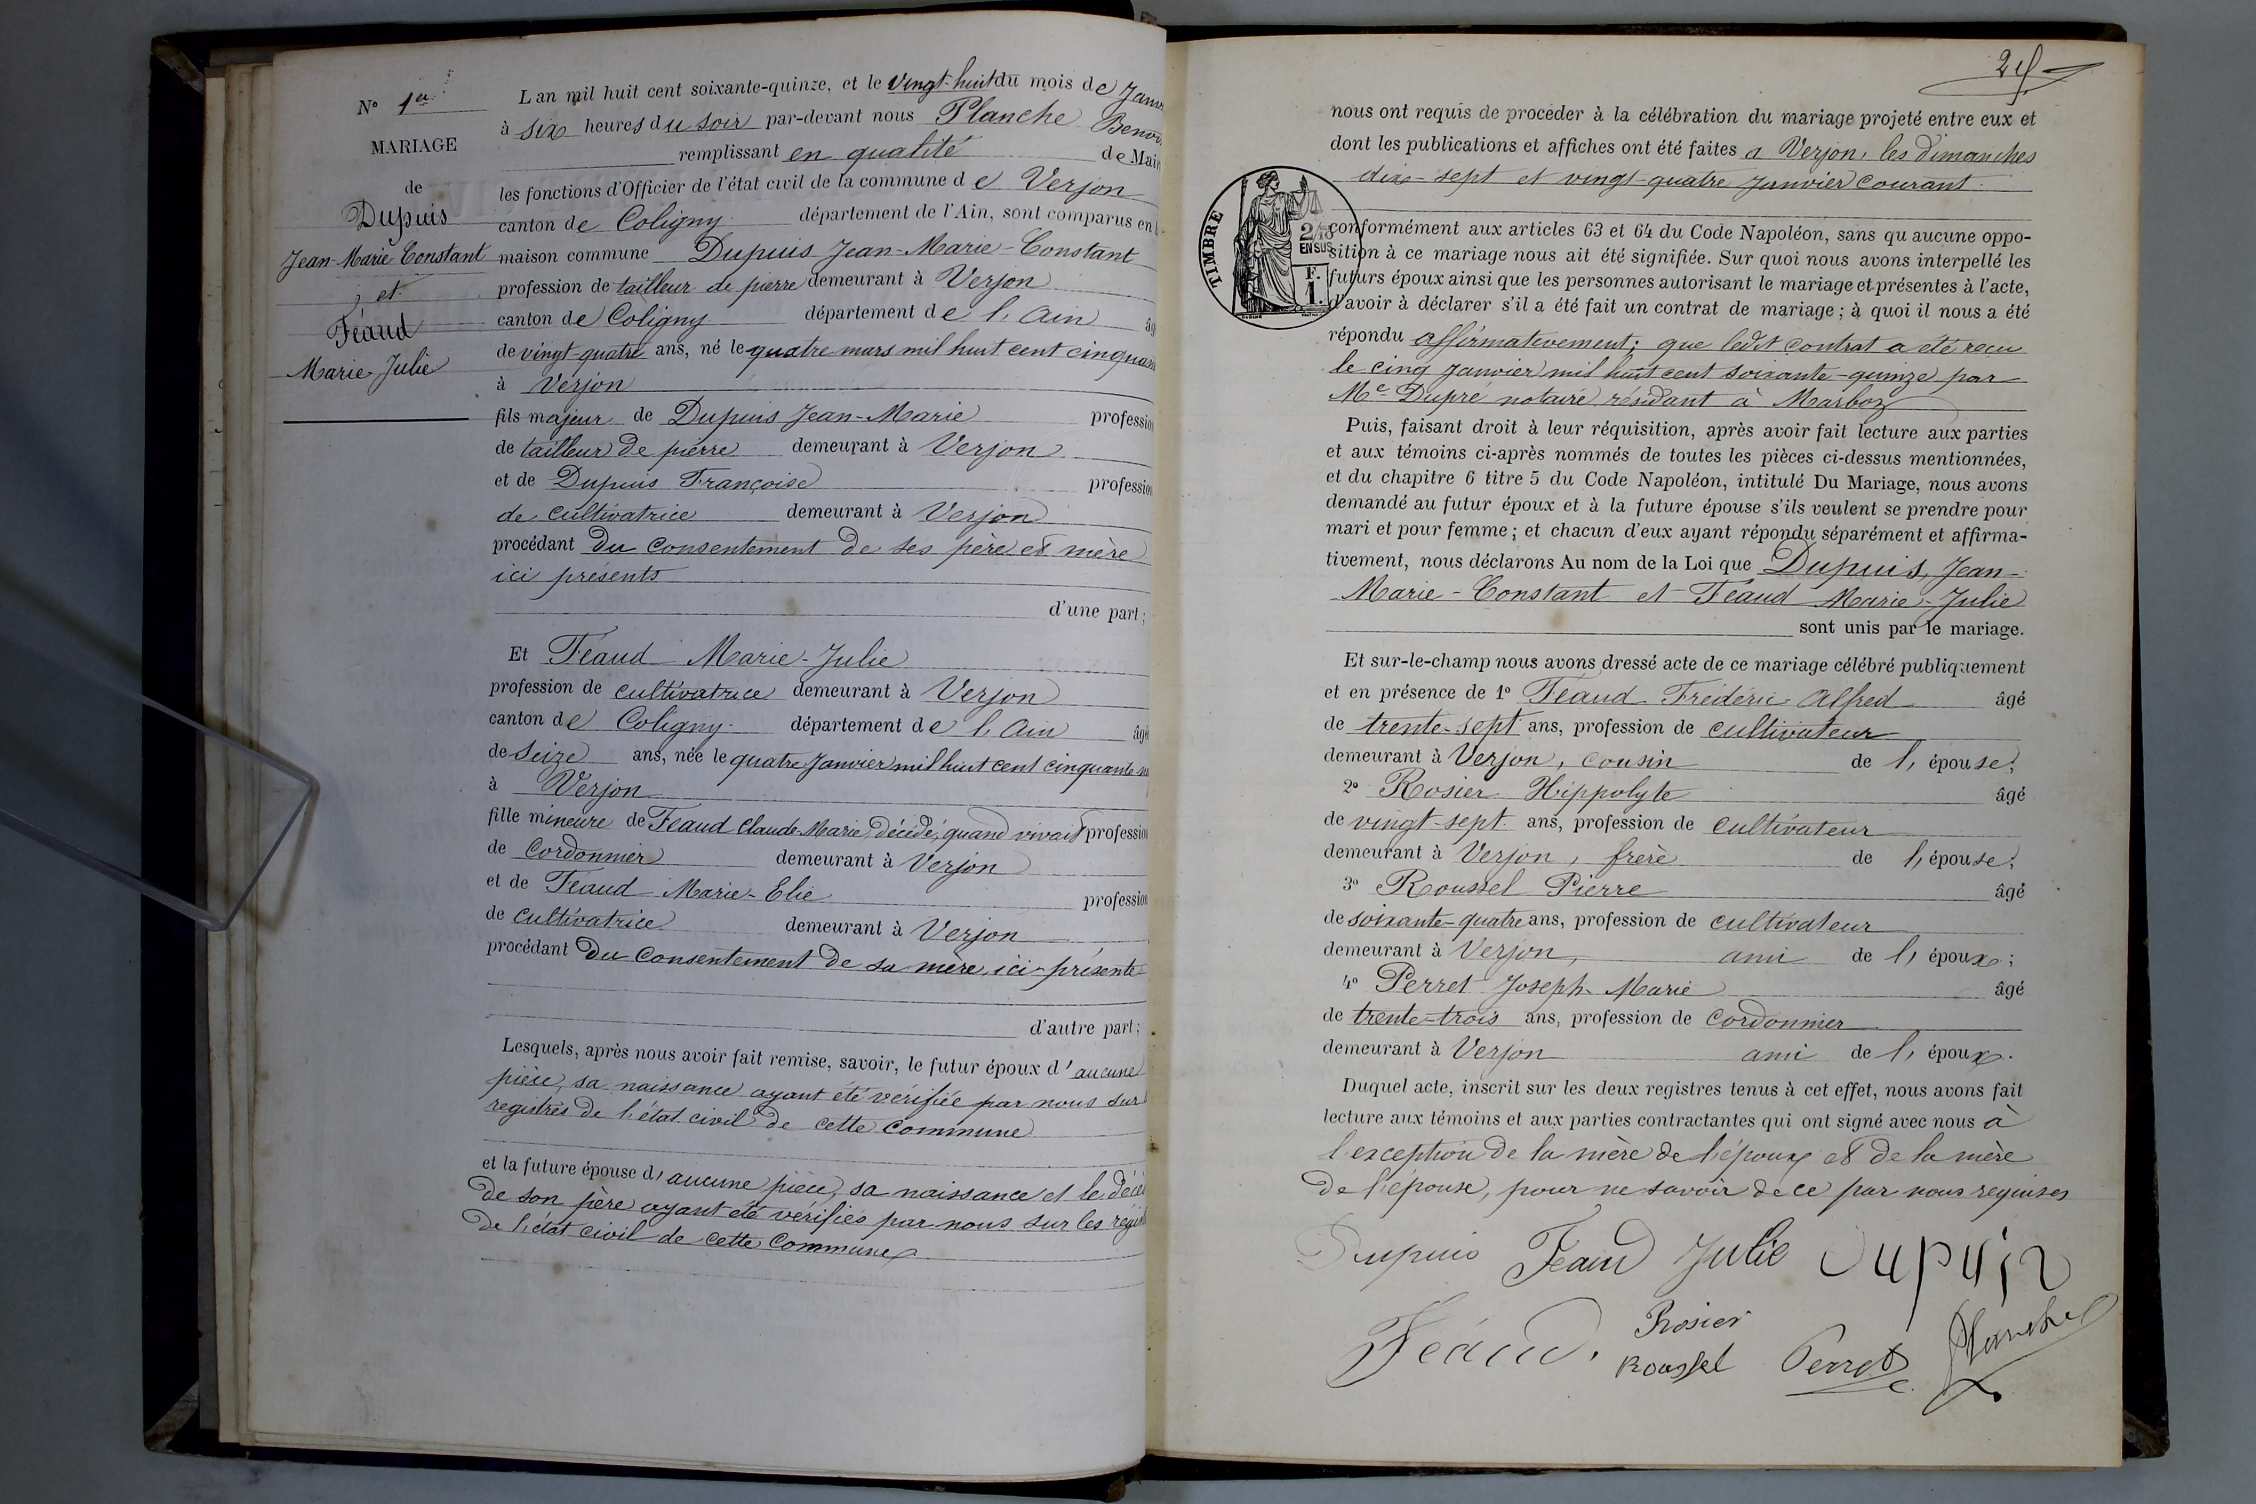 N° 1er
MARIAGE
de
Dupuis
Jean-Marie Constant
et
Féaud
Marie Julie
L an mil huit cent soixante-quinze, et le vingt-huit du mois de Janv
à six heures du soir par-devant nous Planche Benoi
remplissant en qualité de Mair
les fonctions d'Officier de l'état civil de la commune d e Verjon
canton de Coligny département de l'Ain, sont comparus en l
maison commune Dupuis Jean-Marie-Constant
profession de tailleur de pierre demeurant à Verjon
canton de Coligny département de l'Ain âg
de vingt-quatre ans, né le quatre mars mil huit cent cinquan
à Verjon
fils majeur de Dupuis Jean-Marie profession
de tailleur de pierre demeurant à Verjon
et de Dupuis Françoise profession
de cultivatrice demeurant à Verjon
procédant du consentement de ses père et mère
ici présents
d'une part;
Et Féaud Marie-Julie
profession de cultivatrice demeurant à Verjon
canton de Coligny département de l'Ain âgé
de seize ans, née le quatre Janvier mil huit cent cinquante-n
à Verjon
fille mineure de Féaud Claude-Marie, décédé, quand vivait profession
de cordonnier demeurant à Verjon
et de Féaud Marie-Elie profession
de cultivatrice demeurant à Verjon
procédant du consentement de sa mère, ici-présente
d'autre part;
Lesquels, après nous avoir fait remise, savoir, le futur époux d'aucune
pièce, sa naissance ayant été vérifiée par nous sur l
registres de l'état civil de cette commune
et la future épouse d'aucune pièce, sa naissance et le décè
de son père ayant été vérifiés par nous sur les regist
de l'état civil de cette commune
nous ont requis de procéder à la célébration du mariage projeté entre eux et
dont les publications et affiches ont été faites a Verjon, les dimanches
dix-sept et vingt-quatre Janvier courant
TIMBRE
2/10
EN SUS
F.
1.
conformément aux articles 63 et 64 du Code Napoléon, sans qu aucune oppo-
sition à ce mariage nous ait été signifiée. Sur quoi nous avons interpellé les
futurs époux ainsi que les personnes autorisant le mariage et présentes à l'acte,
d'avoir à déclarer s'il a été fait un contrat de mariage; à quoi il nous a été
répondu affirmativement; que ledit contrat a été reçu
le cinq janvier mil huit cent soixante-quinze par
Me Dupré notaire résidant à Marboz
Puis, faisant droit à leur réquisition, après avoir fait lecture aux parties
et aux témoins ci-après nommés de toutes les pièces ci-dessus mentionnées,
et du chapitre 6 titre 5 du Code Napoléon, intitulé Du Mariage, nous avons
demandé au futur époux et à la future épouse s'ils veulent se prendre pour
mari et pour femme; et chacun d'eux ayant répondu séparément et affirma-
tivement, nous déclarons Au nom de la Loi que Dupuis, Jean-
Marie-Constant et Féaud Marie-Julie
sont unis par le mariage.
Et sur-le-champ nous avons dressé acte de ce mariage célébré publiquement
et en présence de 1° Féaud Frédéric Alfred âgé
de trente-sept ans, profession de cultivateur
demeurant à Verjon, cousin de l'épouse;
2° Rosier Hippolyte âgé
de vingt-sept ans, profession de cultivateur
demeurant à Verjon, frère de l'épouse;
3° Roussel Pierre âgé
de soixante-quatre ans, profession de cultivateur
demeurant à Verjon, ami de l'époux;
4° Perret Joseph-Marie âgé
de trente-trois ans, profession de cordonnier
demeurant à Verjon ami de l'époux.
Duquel acte, inscrit sur les deux registres tenus à cet effet, nous avons fait
lecture aux témoins et aux parties contractantes qui ont signé avec nous à
l'exception de la mère de l'époux et de la mère
de l'épouse, pour ne savoir de ce par nous requises
Dupuis Féaud Julie Dupuis
Féaud. Rosier
Roussel Perret Planche